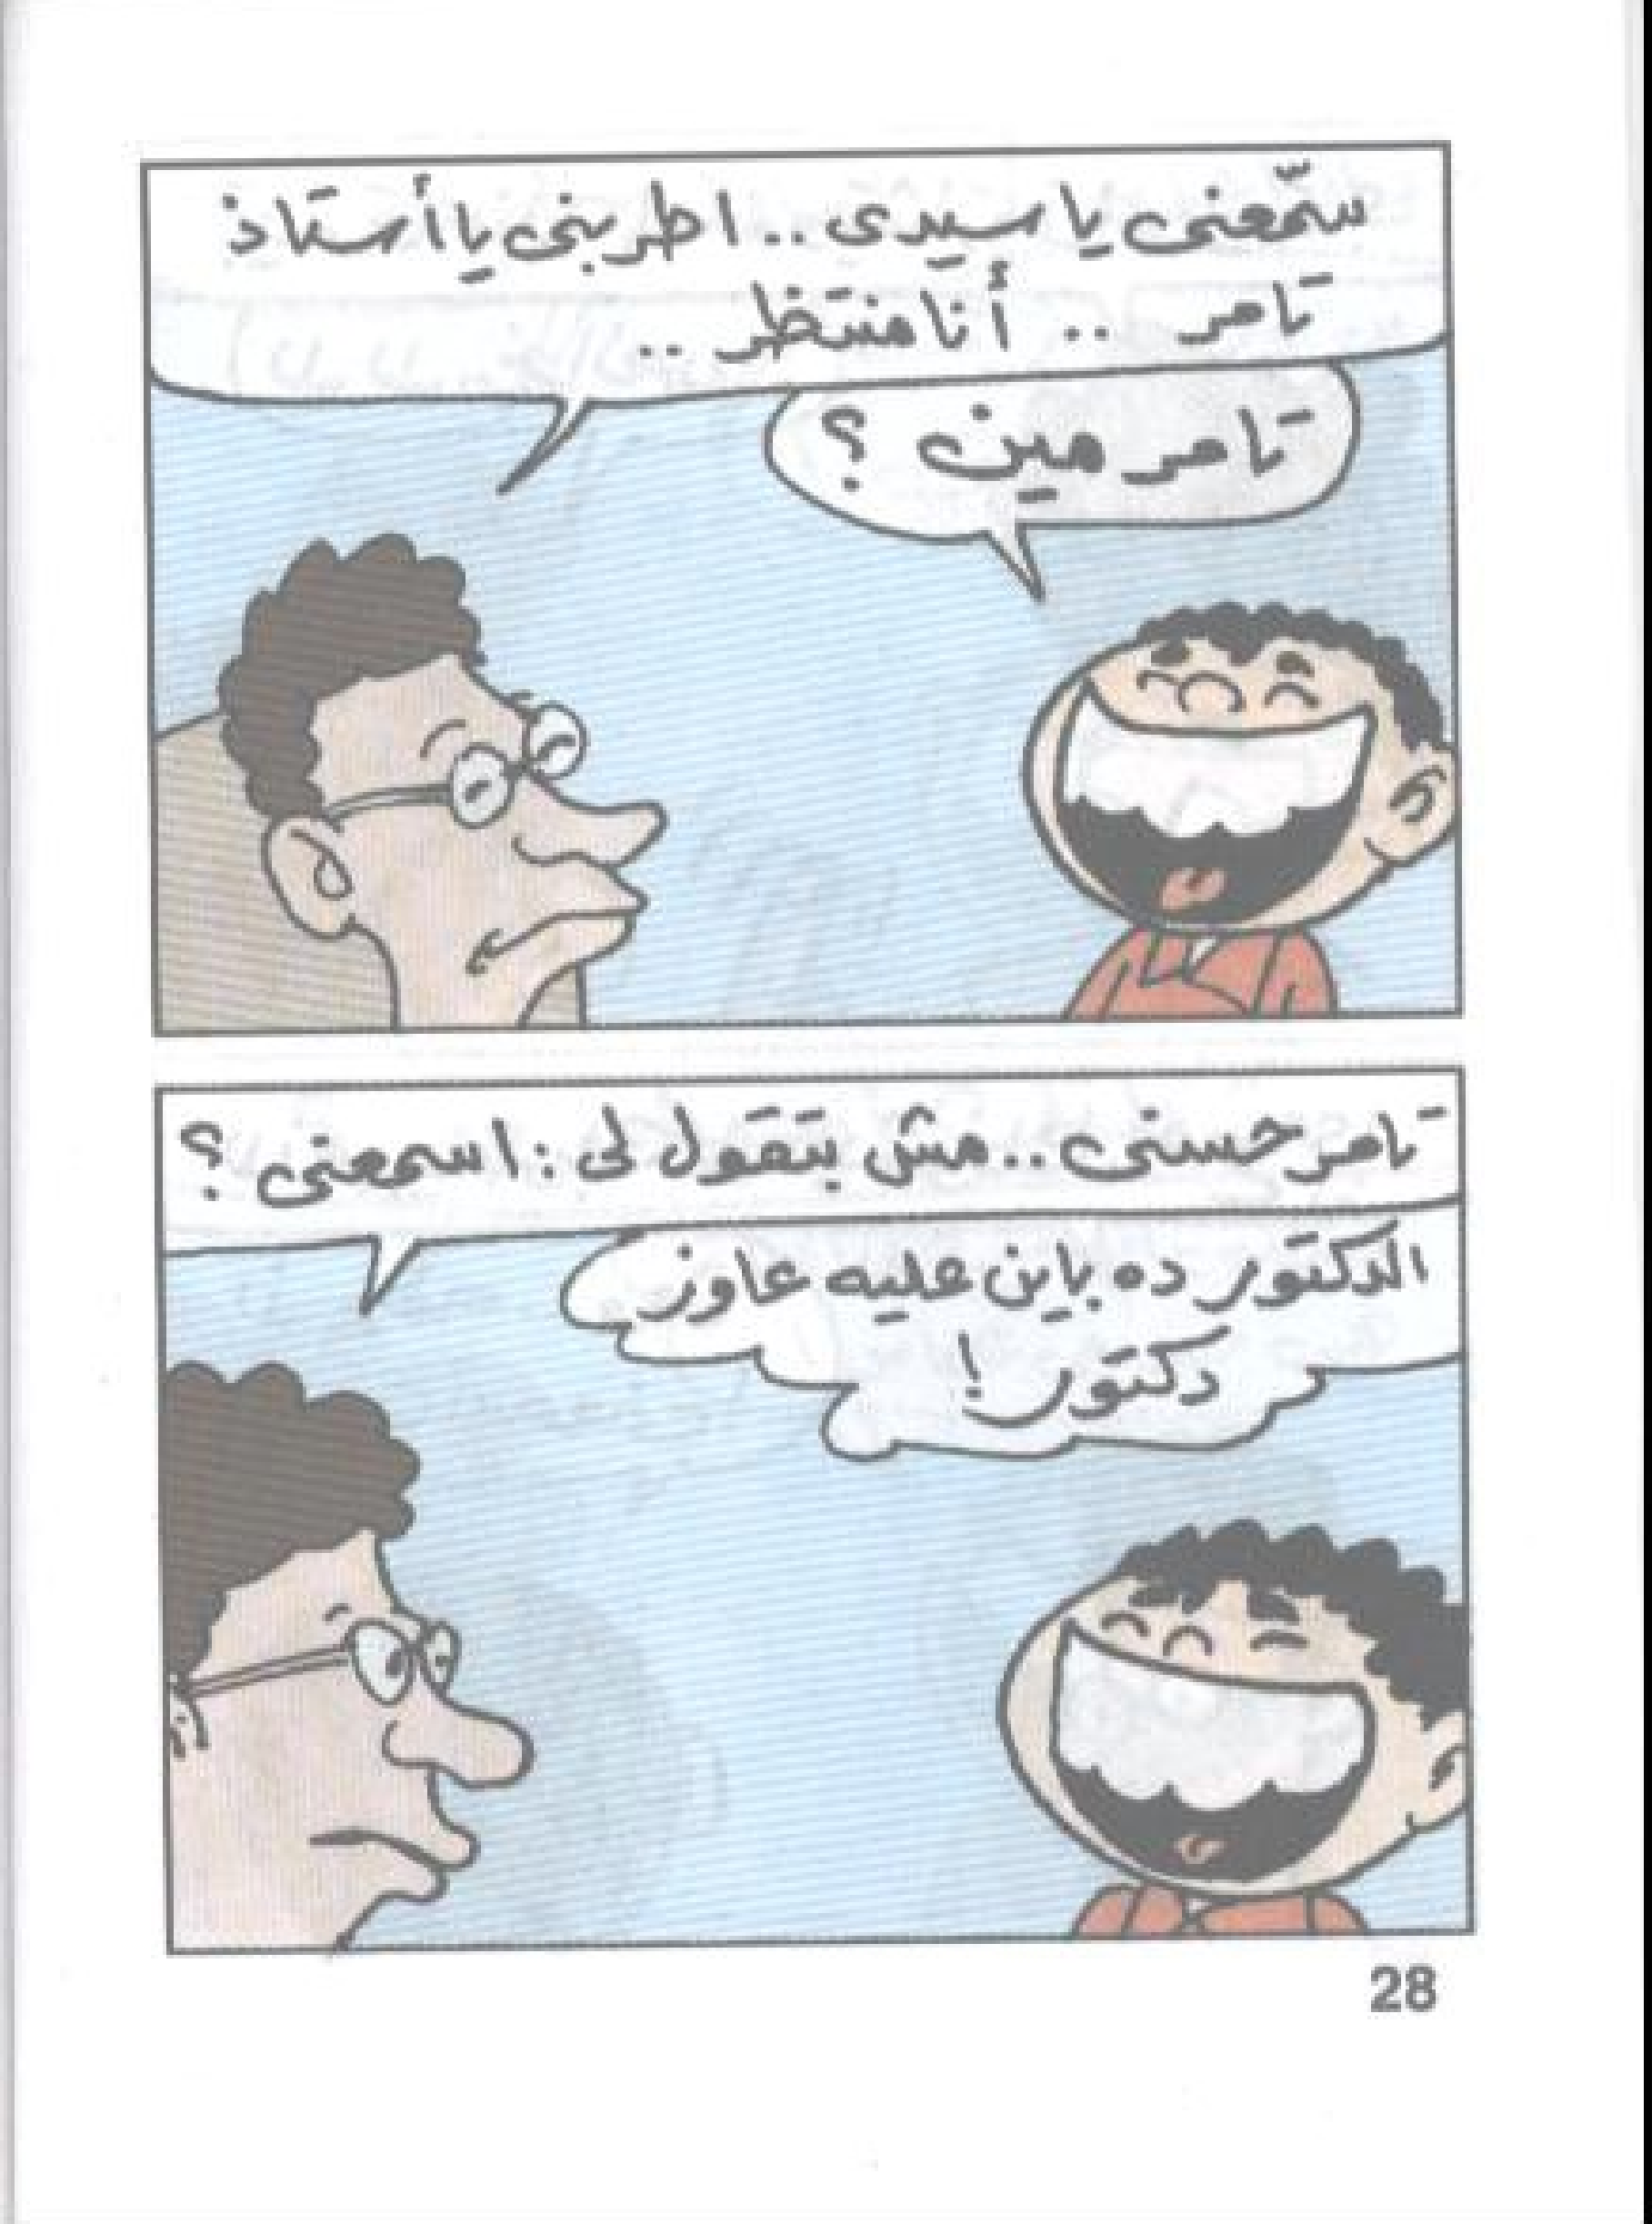 سمّعنى يا سيدى .. اطربنى يا أستاذ
تامر .. أنا منتظر ..
تامر مين ؟
تامر حسنى .. مش بتقول لى : اسمعنى ؟
الدكتور ده باين عليه عاوز
دكتور !
28